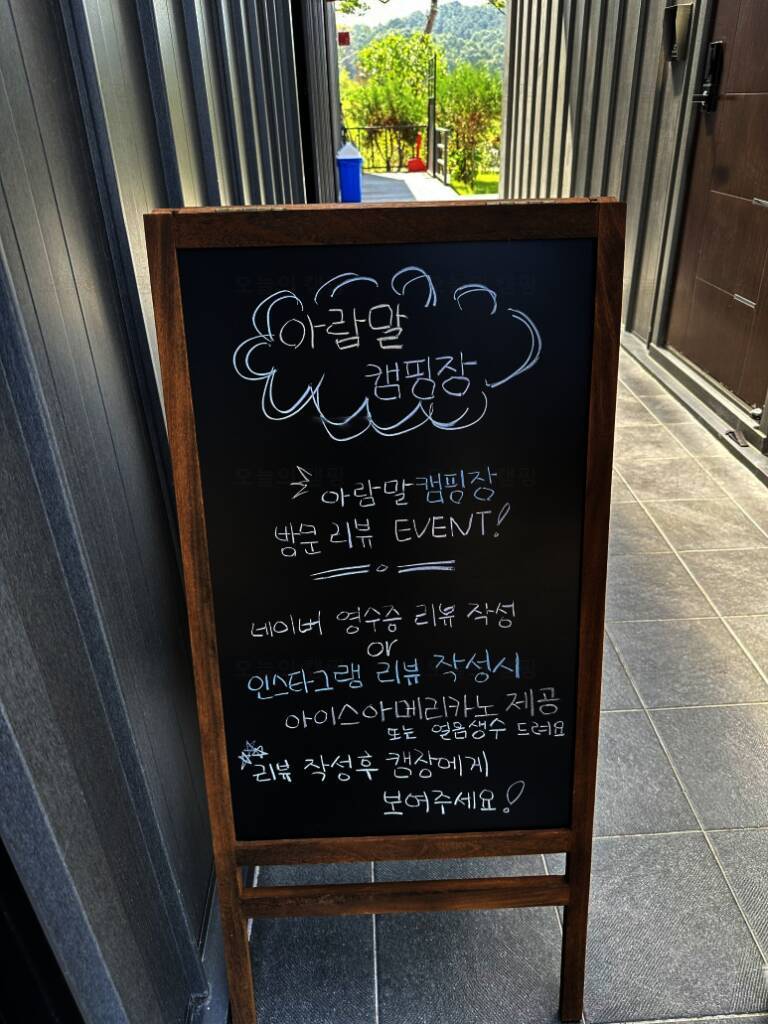 아람말
캠핑장
아람말캠핑장
방문 리뷰 EVENT!
네이버 영수증 리뷰 작성
or
인스타그램 리뷰 작성시
아이스아메리카노 제공
또는 얼음생수 드려요
리뷰 작성후 캠장에게
보여주세요!